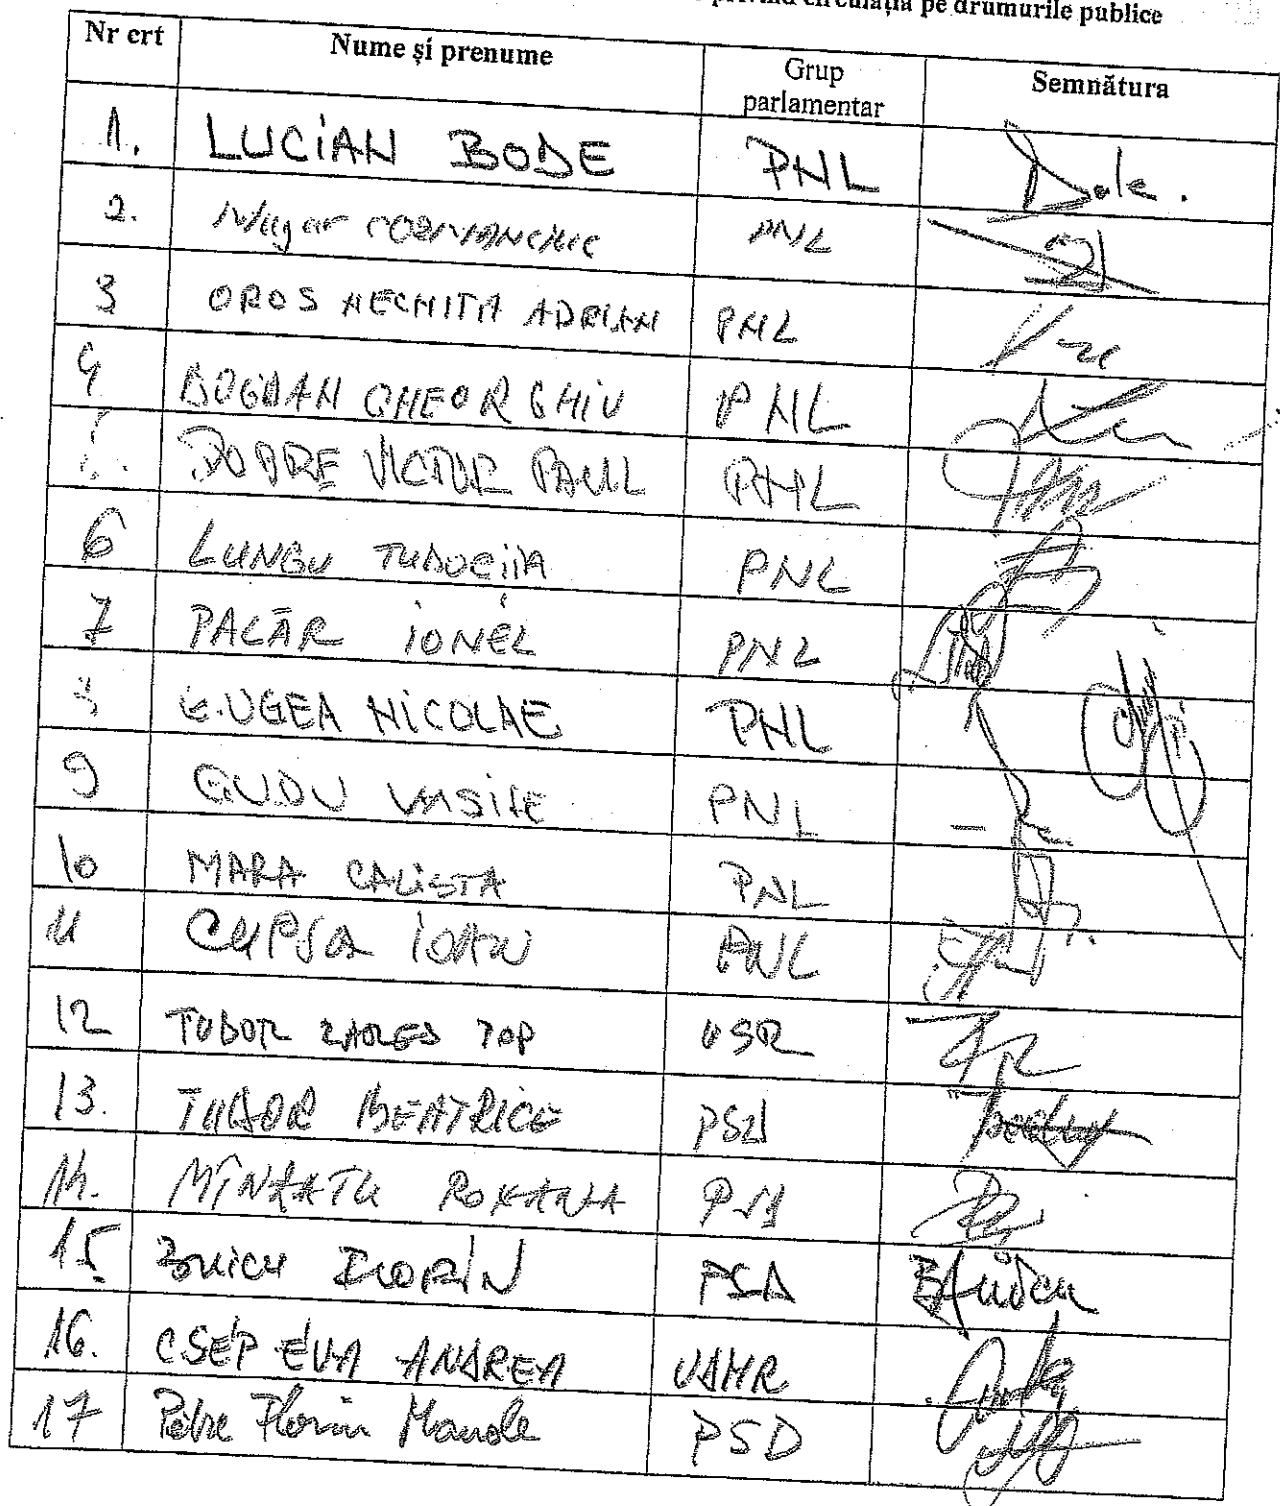 privind circulația pe drumurile publice
Nr crt Nume și prenume Grup parlamentar Semnătura
1. LUCIAN BODE PNL
2. Mugur COZMANCIUC PNL
3 OROS NECHITA ADRIAN PNL
4 BOGDAN GHEORGHIU PNL
DOBRE VICTOR PAUL PNL
6 LUNGU TUDORIȚA PNL
7 PALĂR IONEL PNL
GIUGEA NICOLAE PNL
9 GUDU VASILE PNL
10 MARA CALISTA PNL
11 CUPȘA IOAN PNL
12 TUDOR RAREȘ POP USR
13. TUDOR BEATRICE PSD
14. MÎNZATU ROXANA PSD
15. FLORIN PSD
16. CSÉP ÉVA ANDREA UDMR
17 Petre Florin Manole PSD